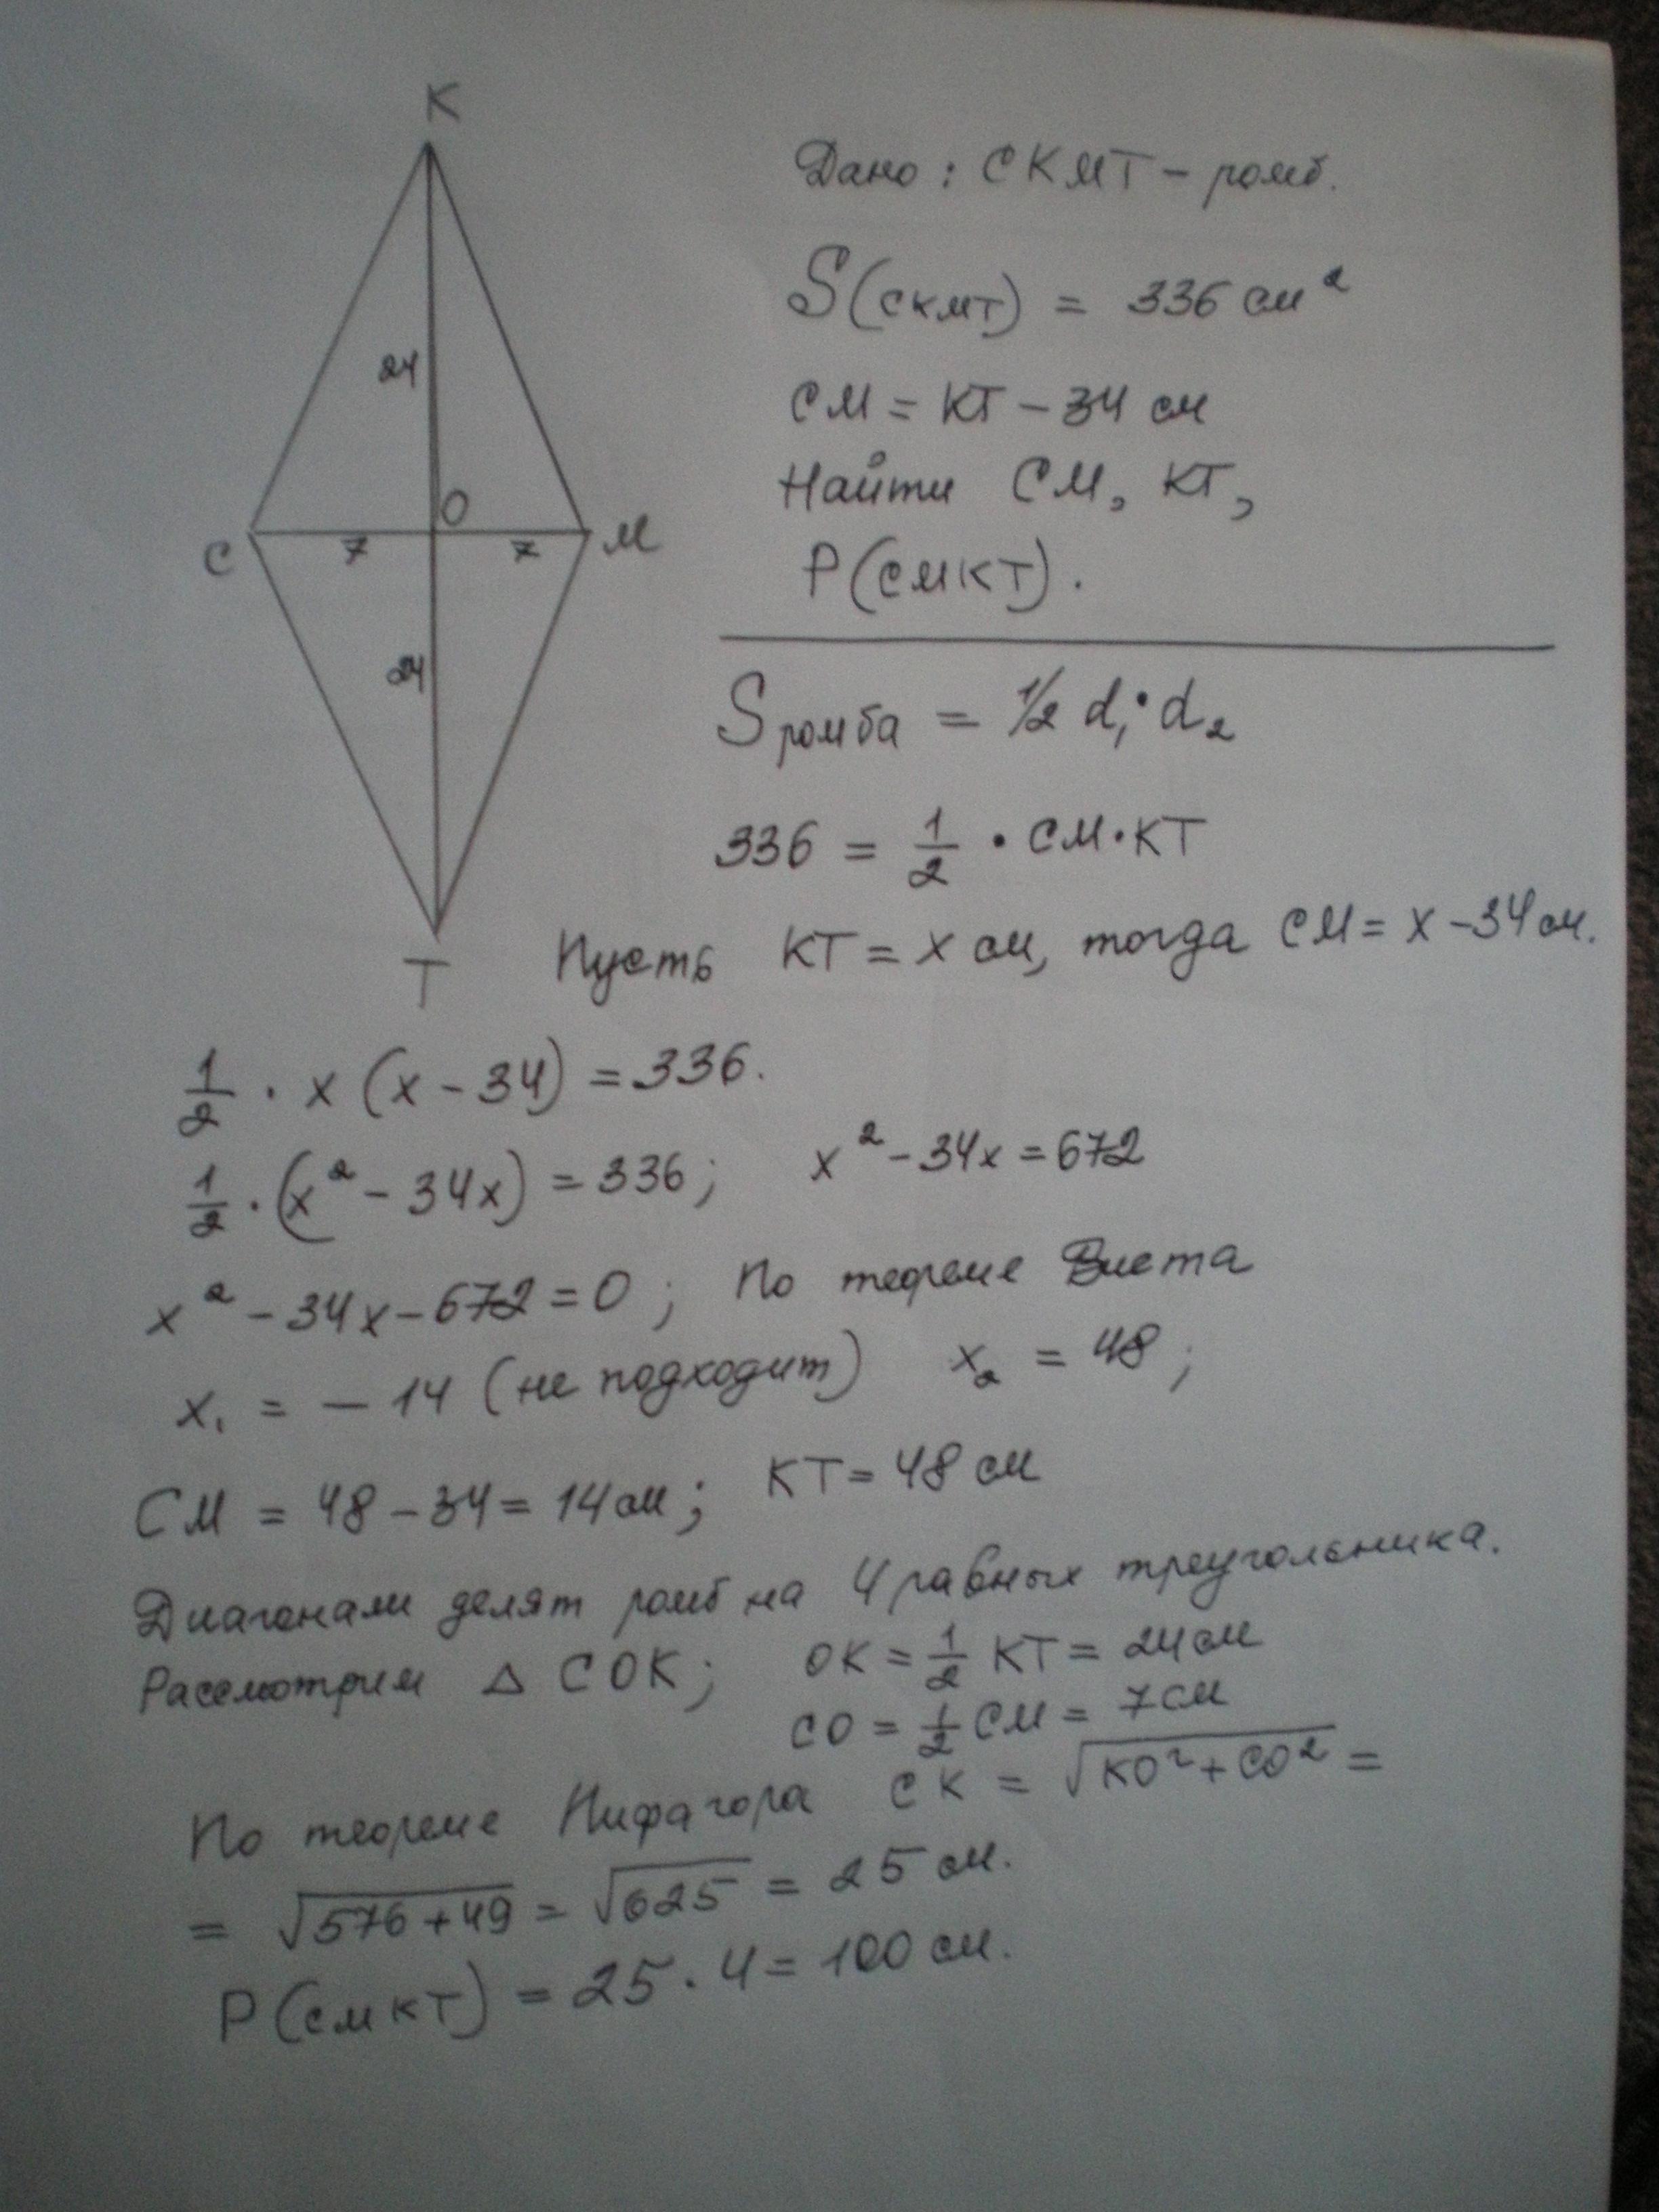 K
24
O
C
7
7
M
24
T
Дано: СКМТ - ромб.
S(СКМТ) = 336 см²
СМ = КТ - 34 см
Найти СМ, КТ,
Р(СМКТ).
Sромба = 1/2 d₁·d₂
336 = 1/2 · СМ·КТ
Пусть КТ = x см, тогда СМ = x - 34 см.
1/2 · x (x - 34) = 336.
1/2 · (x² - 34x) = 336; x² - 34x = 672
x² - 34x - 672 = 0; По теореме Виета
x₁ = - 14 (не подходит) x₂ = 48;
СМ = 48 - 34 = 14 см; КТ = 48 см
Диагонали делят ромб на 4 равных треугольника.
Рассмотрим △ СОК; ОК = 1/2 КТ = 24 см
СО = 1/2 СМ = 7 см
По теореме Пифагора СК = √(КО² + СО²) =
= √(576 + 49) = √625 = 25 см.
Р(СМКТ) = 25 · 4 = 100 см.